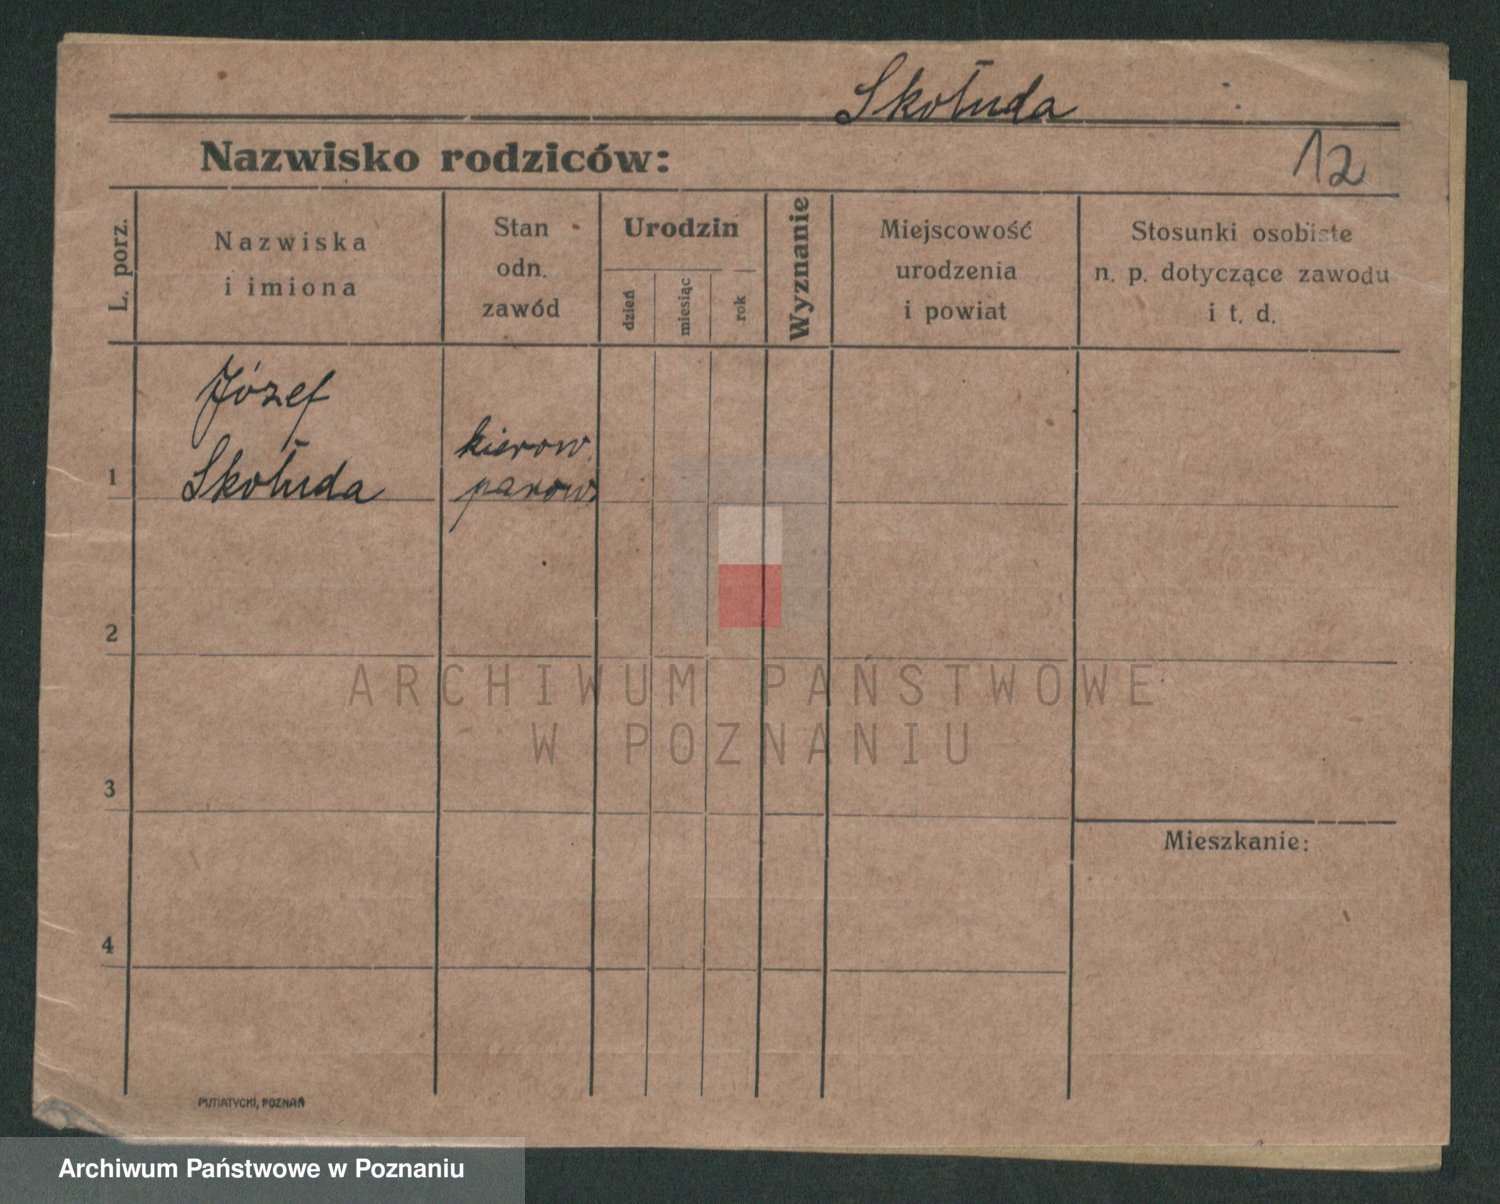 Skołuda
Nazwisko rodziców:
12
L. porz.
Nazwiska
i imiona
Stan
odn.
zawód
Urodzin
dzień
miesiąc
rok
Wyznanie
Miejscowość
urodzenia
i powiat
Stosunki osobiste
n. p. dotyczące zawodu
i t. d.
Józef
1 Skołuda
kierow.
parow.
2
ARCHIWUM PAŃSTWOWE
W POZNANIU
3
Mieszkanie:
4
PUTIATYCKI, POZNAŃ
Archiwum Państwowe w Poznaniu